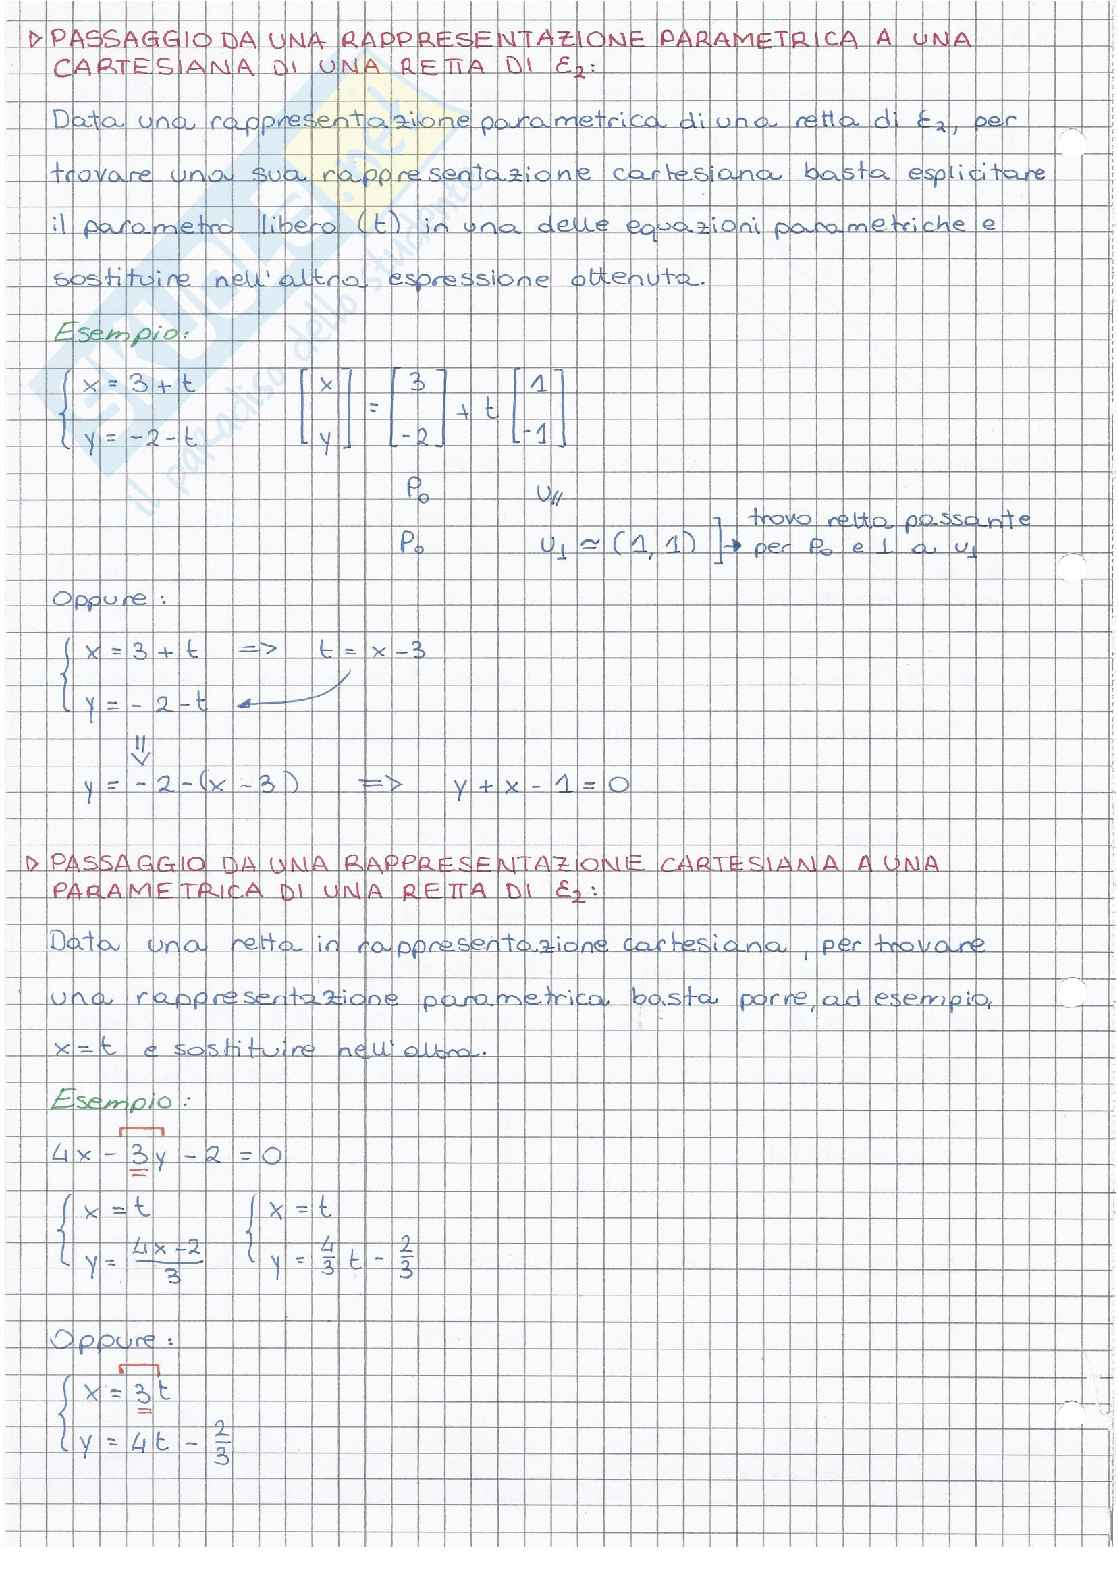 ▷ PASSAGGIO DA UNA RAPPRESENTAZIONE PARAMETRICA A UNA
CARTESIANA DI UNA RETTA DI ℰ₂:
Data una rappresentazione parametrica di una retta di ℰ₂, per
trovare una sua rappresentazione cartesiana basta esplicitare
il parametro libero (t) in una delle equazioni parametriche e
sostituire nell'altra espressione ottenuta.
Esempio:
{ x = 3 + t    [x] = [3] + t [1]
{ y = -2 - t    [y]   [-2]     [-1]
P₀    u∥
P₀    u⊥ ≃ (1, 1) ] → trovo retta passante
per P₀ e ⊥ a u⊥
Oppure:
{ x = 3 + t => t = x - 3
{ y = - 2 - t ←
⇓
y = - 2 - (x - 3) => y + x - 1 = 0
▷ PASSAGGIO DA UNA RAPPRESENTAZIONE CARTESIANA A UNA
PARAMETRICA DI UNA RETTA DI ℰ₂:
Data una retta in rappresentazione cartesiana, per trovare
una rappresentazione parametrica basta porre, ad esempio,
x = t e sostituire nell'altra.
Esempio:
4x - 3y - 2 = 0
{ x = t    { x = t
{ y = (4x - 2)/3    { y = 4/3 t - 2/3
Oppure:
{ x = 3t
{ y = 4t - 2/3
SKUOLA.net
il paradiso dello studente